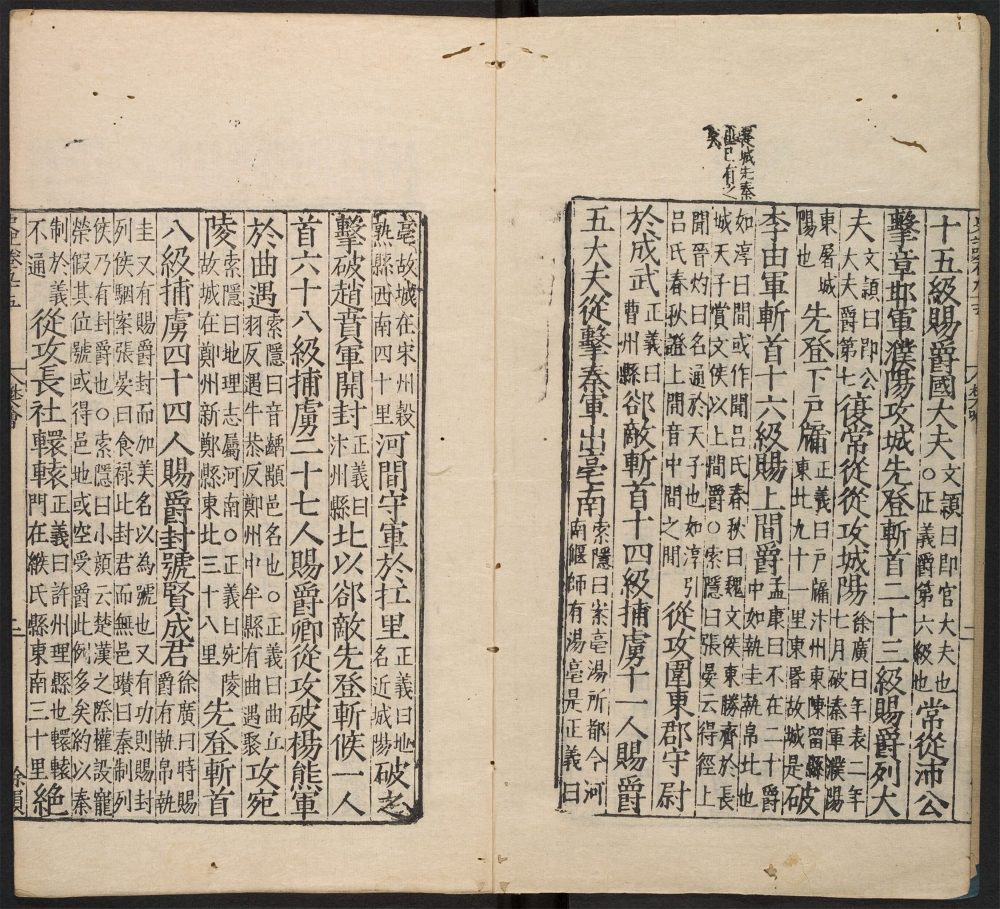 十五級賜爵國大夫文穎曰即官大夫也○正義爵第六級也常從沛公
擊章邯軍濮陽攻城先登斬首二十三級賜爵列大
夫文穎曰即公大夫爵第七復常從從攻城陽徐廣曰年表二年七月破秦軍濮陽
東屠城陽也先登下戶牖正義曰戶牖汴州東陳留縣東北九十一里東昏故城是破
李由軍斬首十六級賜上間爵孟康曰不在二十爵中如執圭執帛比也
如淳曰間或作聞呂氏春秋曰魏文侯東勝齊於長城天子賞文侯以上間爵○索隱曰張晏云得徑上
聞晉灼曰名通於天子也如淳引呂氏春秋證上間音中間之間從攻圍東郡守尉
於成武正義曰曹州縣郤敵斬首十四級捕虜十一人賜爵
五大夫從擊秦軍出亳南索隱曰案亳湯所都今河南偃師有湯亭是正義曰
城先秦
已有之
矣
亳故城在宋州穀熟縣西南四十里河間守軍於扛里正義曰地名近城陽破之
擊破趙賁軍開封正義曰汴州縣北以郤敵先登斬候一人
首六十八級捕虜二十七人賜爵卿從攻破楊熊軍
於曲遇索隱曰音齲顒邑名也○正義曰曲丘羽反遇牛恭反鄭州中牟縣有曲遇聚攻宛
陵索隱曰地理志屬河南○正義曰宛陵故城在鄭州新鄭縣東北三十八里先登斬首
八級捕虜四十四人賜爵封號賢成君徐廣曰時賜爵有執帛執
圭又有賜爵封而加美名以為號也又有功則賜封列侯駰案張晏曰食祿比封君而無邑瓚曰秦制列
侯乃有封爵也○索隱曰小顏云楚漢之際權設寵榮假其位號或得邑地或空受爵此例多矣約以秦
制於義不通從攻長社轘轅正義曰許州理縣也轘轅門在緱氏縣東南三十里絕